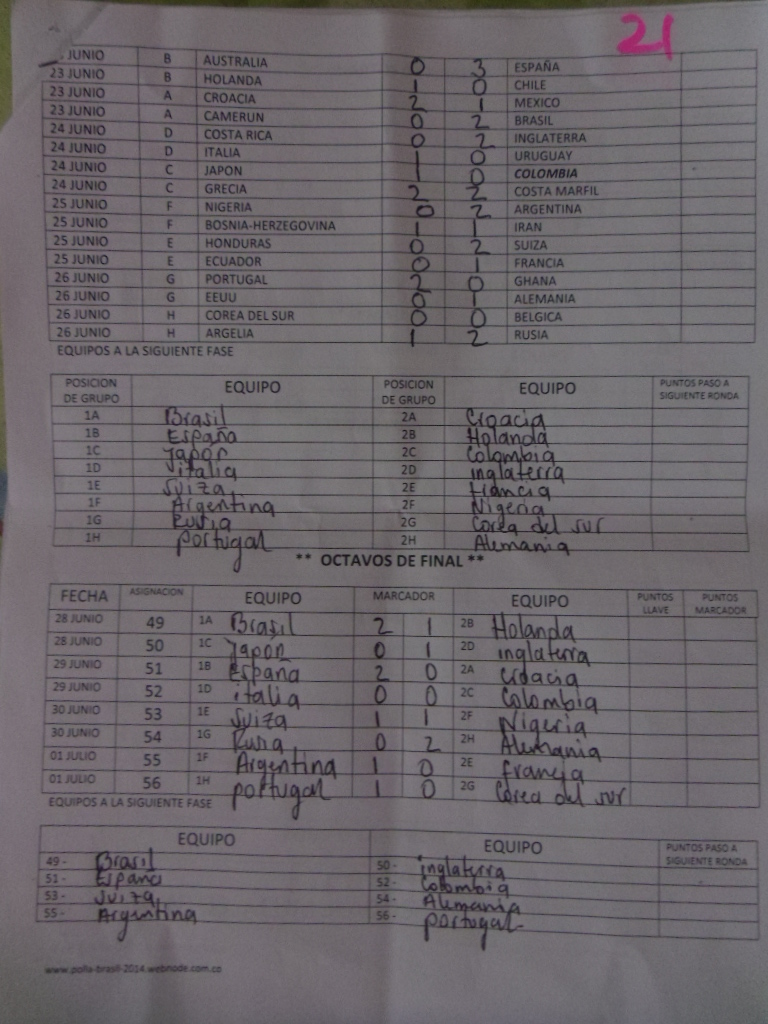 21
JUNIO B AUSTRALIA 0 3 ESPAÑA
23 JUNIO B HOLANDA 1 0 CHILE
23 JUNIO A CROACIA 2 1 MEXICO
23 JUNIO A CAMERUN 0 2 BRASIL
24 JUNIO D COSTA RICA 0 2 INGLATERRA
24 JUNIO D ITALIA 1 0 URUGUAY
24 JUNIO C JAPON 1 0 COLOMBIA
24 JUNIO C GRECIA 2 2 COSTA MARFIL
25 JUNIO F NIGERIA 0 2 ARGENTINA
25 JUNIO F BOSNIA-HERZEGOVINA 1 1 IRAN
25 JUNIO E HONDURAS 0 2 SUIZA
25 JUNIO E ECUADOR 0 1 FRANCIA
26 JUNIO G PORTUGAL 2 0 GHANA
26 JUNIO G EEUU 0 1 ALEMANIA
26 JUNIO H COREA DEL SUR 0 0 BELGICA
26 JUNIO H ARGELIA 1 2 RUSIA
EQUIPOS A LA SIGUIENTE FASE
POSICION DE GRUPO EQUIPO POSICION DE GRUPO EQUIPO PUNTOS PASO A SIGUIENTE RONDA
1A Brasil 2A Croacia
1B España 2B Holanda
1C Japón 2C Colombia
1D italia 2D inglaterra
1E Suiza 2E francia
1F Argentina 2F Nigeria
1G Rusia 2G Corea del sur
1H portugal 2H Alemania
** OCTAVOS DE FINAL **
FECHA ASIGNACION EQUIPO MARCADOR EQUIPO PUNTOS LLAVE PUNTOS MARCADOR
28 JUNIO 49 1A Brasil 2 1 2B Holanda
28 JUNIO 50 1C Japon 0 1 2D inglaterra
29 JUNIO 51 1B España 2 0 2A Croacia
29 JUNIO 52 1D italia 0 0 2C Colombia
30 JUNIO 53 1E Suiza 1 1 2F Nigeria
30 JUNIO 54 1G Rusia 0 2 2H Alemania
01 JULIO 55 1F Argentina 1 0 2E francia
01 JULIO 56 1H portugal 1 0 2G Corea del sur
EQUIPOS A LA SIGUIENTE FASE
EQUIPO EQUIPO PUNTOS PASO A SIGUIENTE RONDA
49 - Brasil 50 - inglaterra
51 - España 52 - Colombia
53 - Suiza 54 - Alemania
55 - Argentina 56 - portugal
www.polla-brasil-2014.webnode.com.co